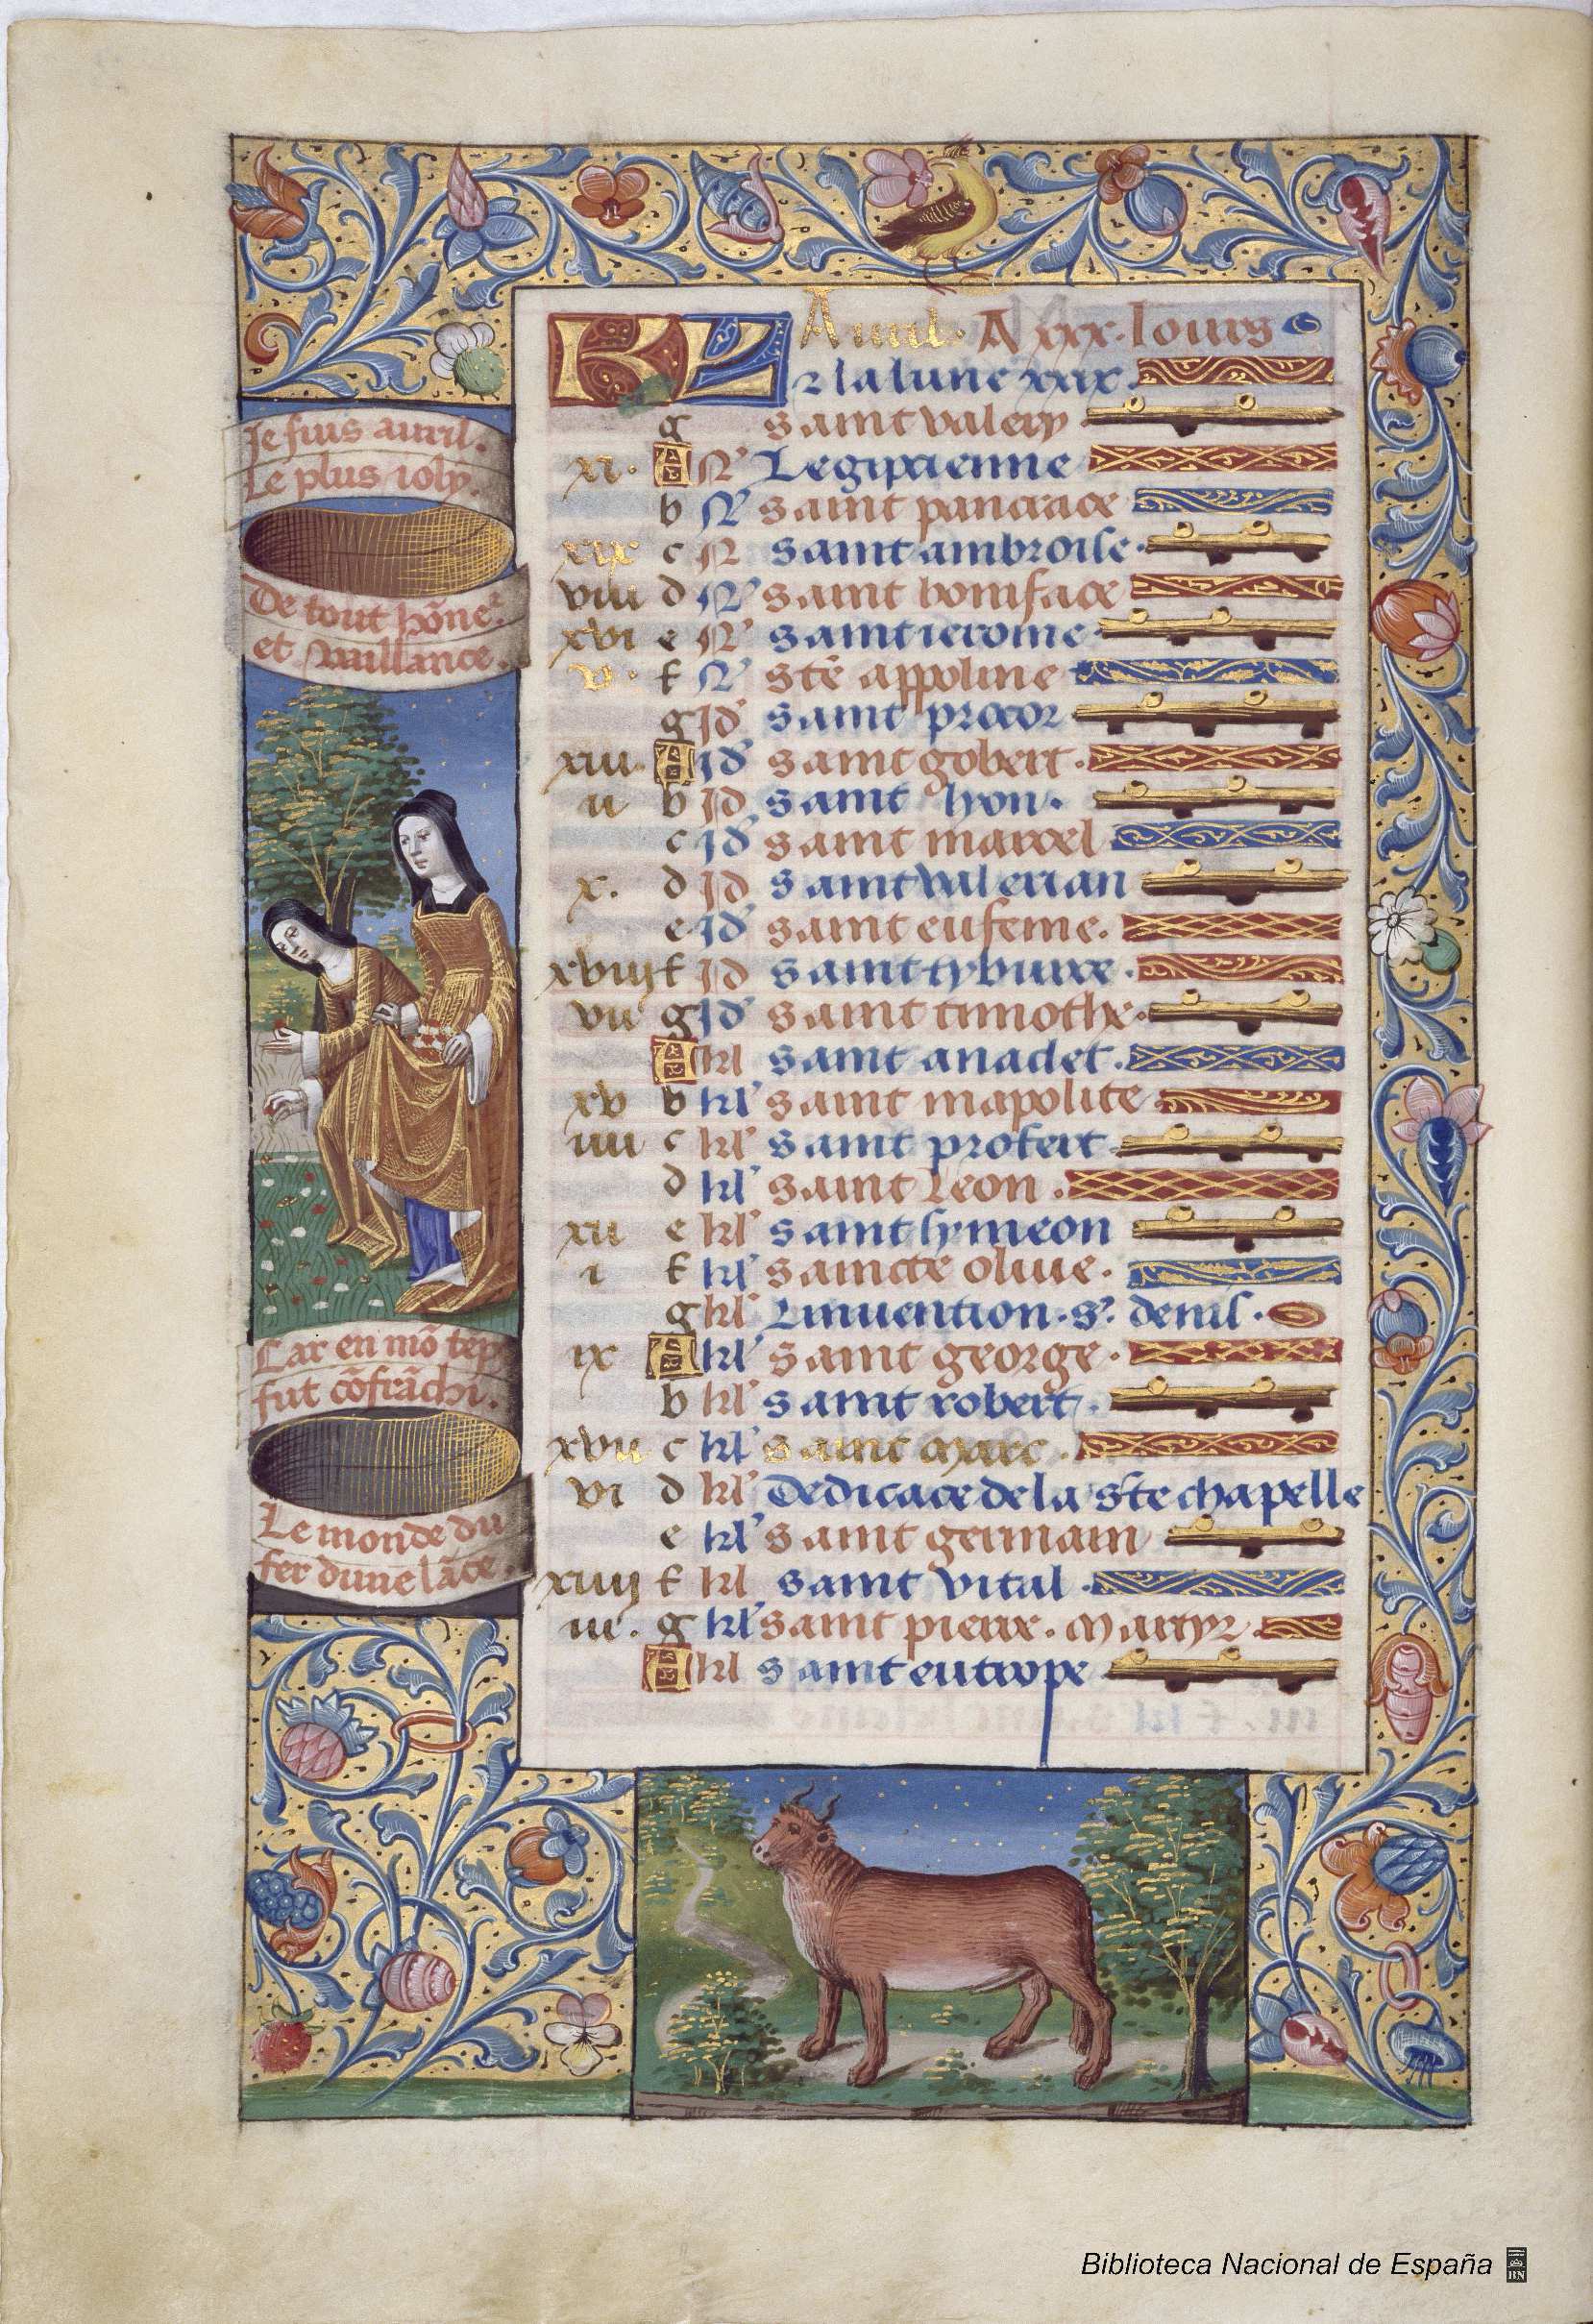 Je suis auril.
Le plus ioly.
De tout hōneᵉ.
et vaillance.
Car en mō tēp
fut cōfrāchi.
Le monde du
fer dune lāce.
KL Auril. A xxx. Iours
⁊ la lune xxix.
g saint valery
xi. A N' Legipcienne
b N' saint pancrace
xix c N saint ambroise.
viii d N' saint boniface
xvi e N' saint ierome
v. f N' stē appoline
g Id' saint procor
xiii A Id' saint gobert.
ii b Id saint lyon.
c Id' saint marcel
x. d Id saint valerian
e Id' saint eufeme.
xviij f Id saint tyburce.
vii g Id' saint timothe.
A kl saint anaclet.
xv b kl' saint mapolite
iiii c kl' saint profert
d kl' saint Leon.
xii e kl' saint symeon
i f kl' saincte oliue.
g kl' Linuention. s'. denis.
ix A kl' saint george.
b kl' saint robert.
xvii c kl' saint marc.
vi d kl' Dedicace de la ste chapelle
e kl' saint germain
xiiij f kl saint vital.
iii. g kl' saint pierre. martyr.
A kl saint eutrope
Biblioteca Nacional de España
BN